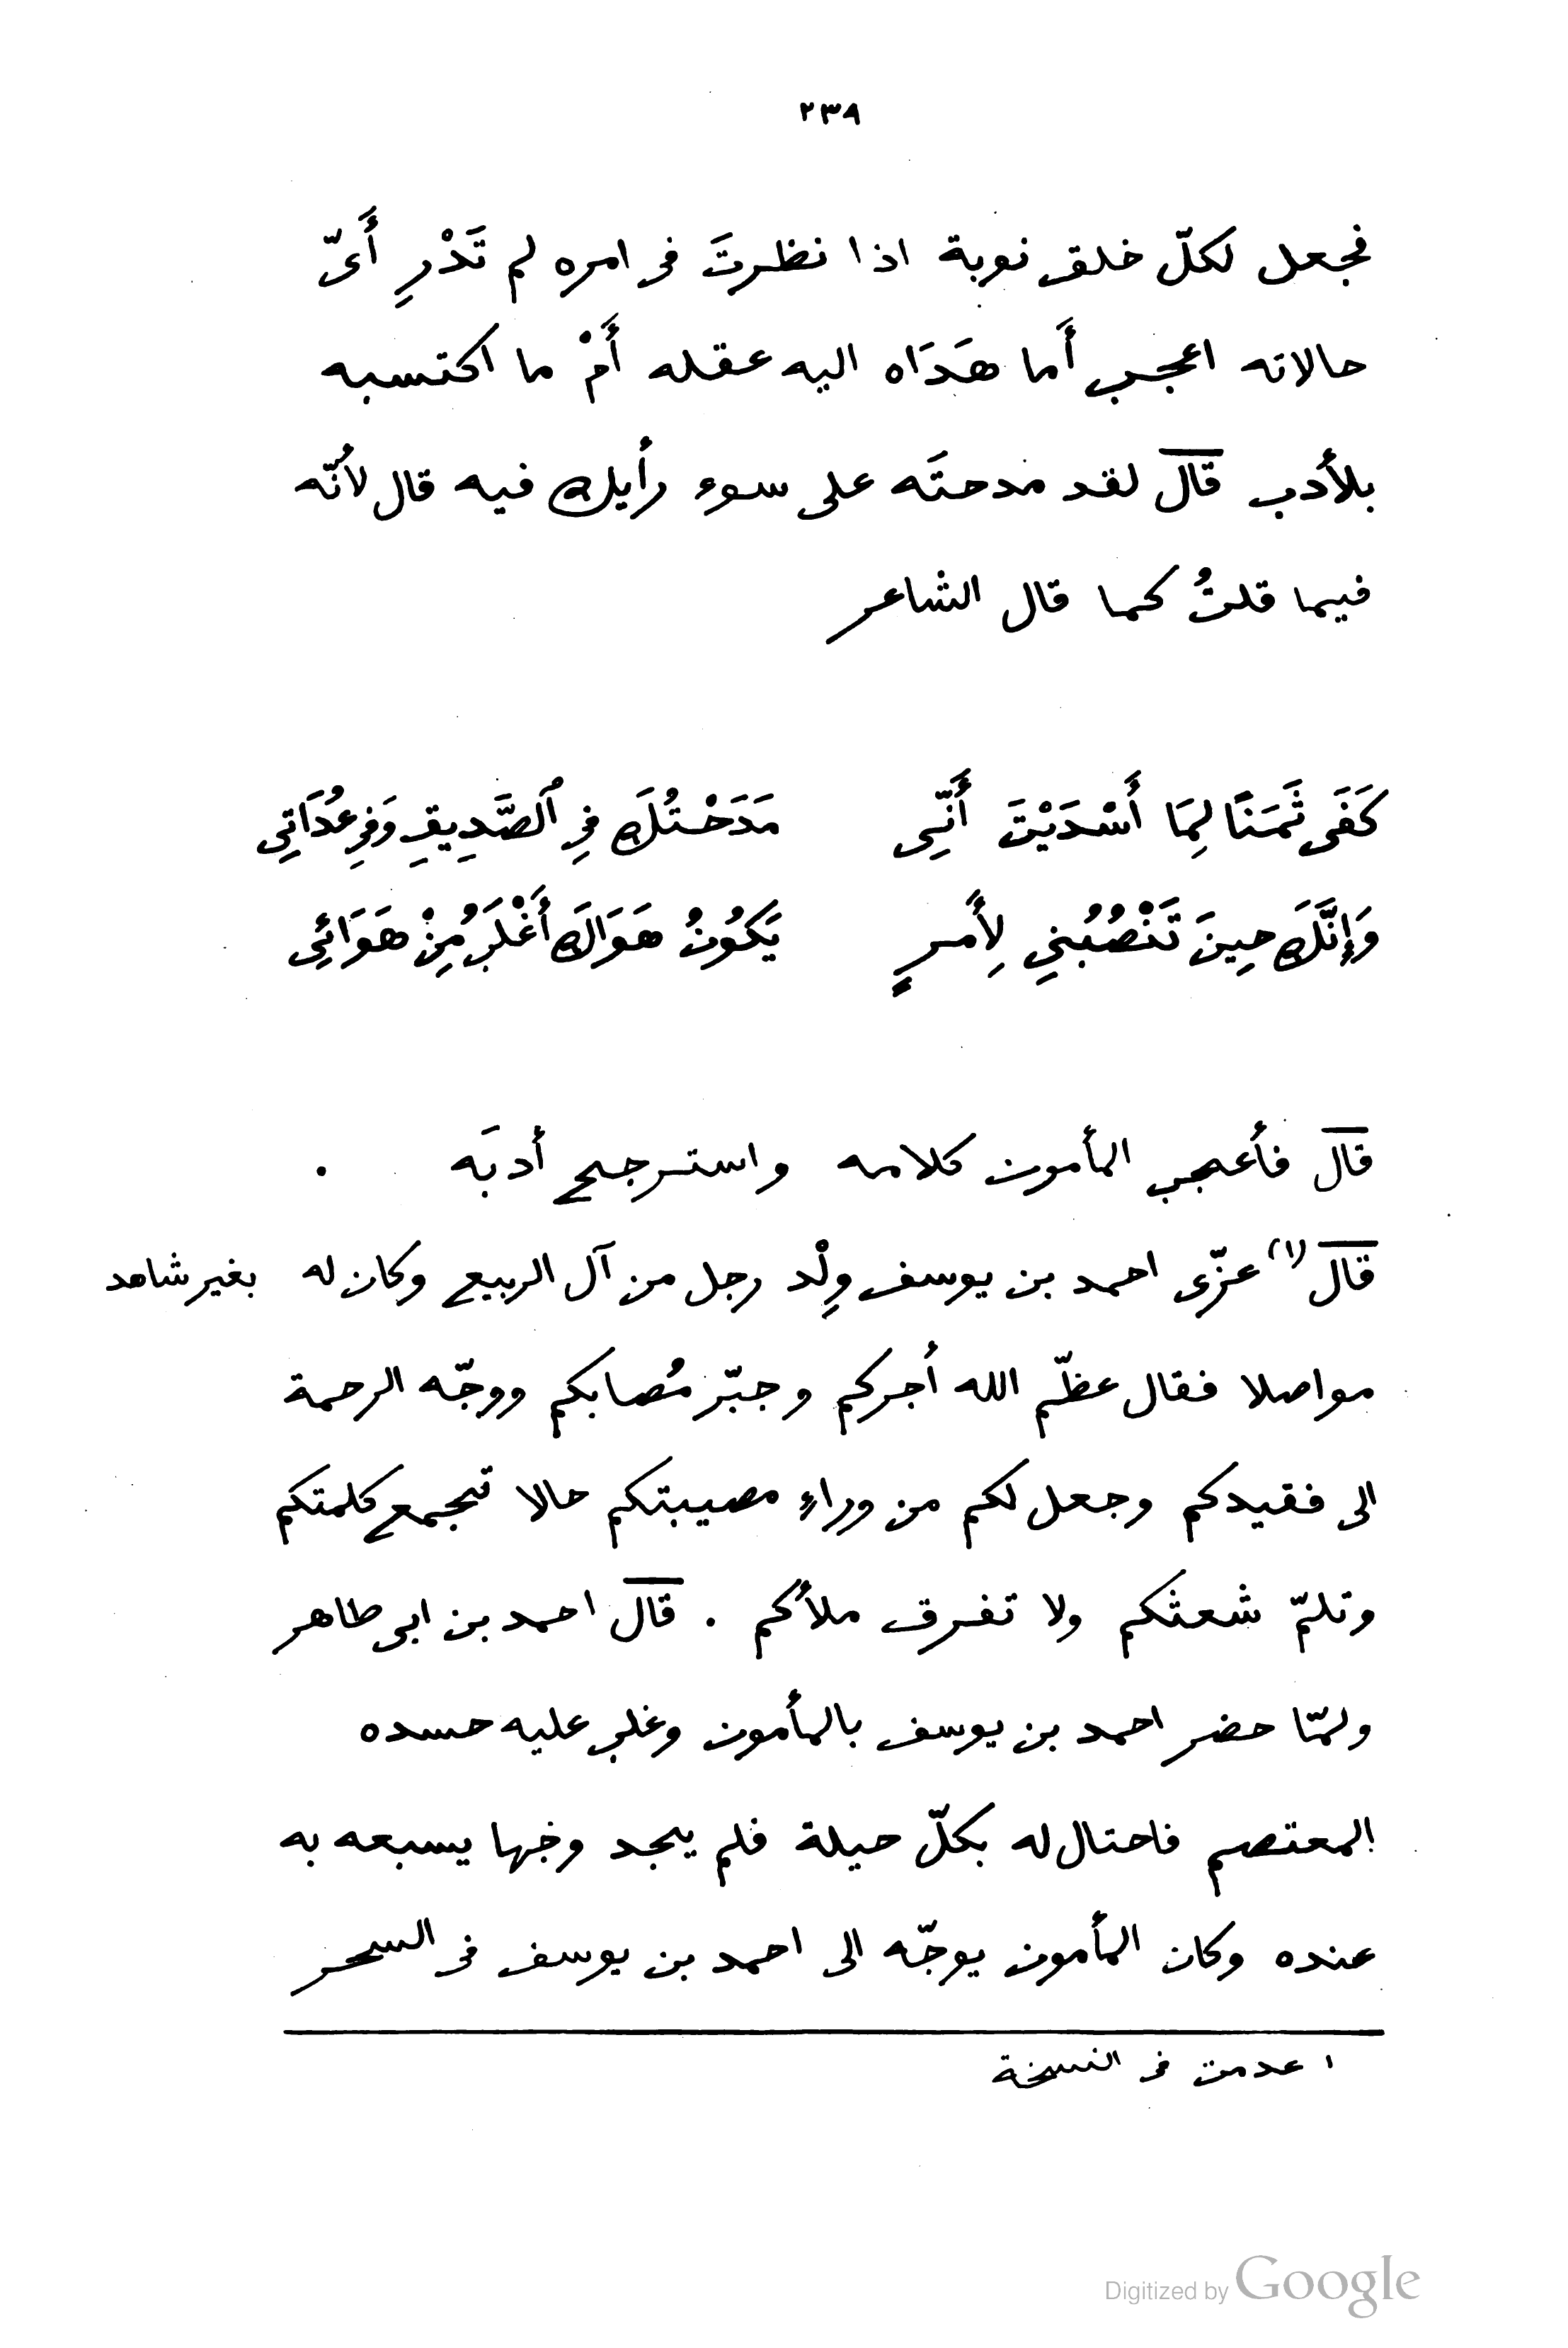 ٢٣٨
فجعل لكلّ خلق نوبة اذا نظرتَ فى امره لم تَدْرِ أَىّ
حالاته اعجب أَما هَدَاه اليه عقله أَمْ ما اكتسبه
بلأدب قال لقد مدحتَه على سوء رأيك فيه قال لأنّه
فيما قلتُ كما قال الشاعر
كَفَى ثَمَنًا لِمَا أَسْدَيْتَ أَنِّى مَدَحْتُكَ فِى ٱلصَّدِيقِ وَفِى عُدَاتِى
وَإِنَّكَ حِينَ تَنْصُبُنِى لِأَمرٍ يَكُونُ هَوَاكَ أَغْلَبُ مِنْ هَوَائِى
قال فأعجب المأمون كلامه واسترجح أدبَه .
قال (١) عزّى احمد بن يوسف وِلْد رجل من آل الربيع وكان له بغير شاهد
مواصلا فقال عظّم الله أجركم وجبّر مُصابكم ووجّه الرحمة
الى فقيدكم وجعل لكم من وراءِ مصيبتكم حالا تجمع كلمتكم
وتلمّ شعثكم ولا تفرق ملأكم . قال احمد بن ابى طاهر
ولمّا حضر احمد بن يوسف بالمأمون وغلب عليه حسده
المعتصم فاحتال له بكلّ حيلة فلم يجد وجها يسبعه به
عنده وكان المأمون يوجّه الى احمد بن يوسف فى السحر
١ عدمت فى النسخة
Digitized by Google